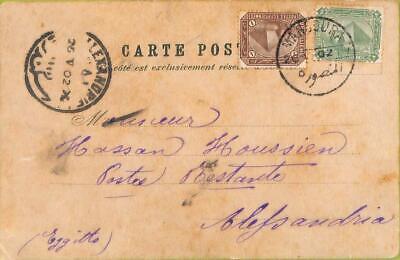 CARTE POS
côté est exclusivement rése
ALEXANDRIE
26 V 02
MANSOURA
02
المنصورة
Monsieur
Hassan Houssien
Postes Restante
Alessandria
(Egitto)